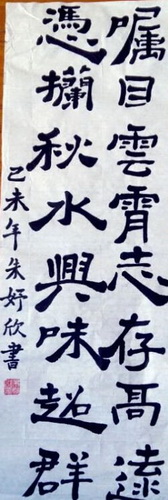 囑目雲霄志存高遠
憑攔秋水興味超群
己未年朱妤欣書